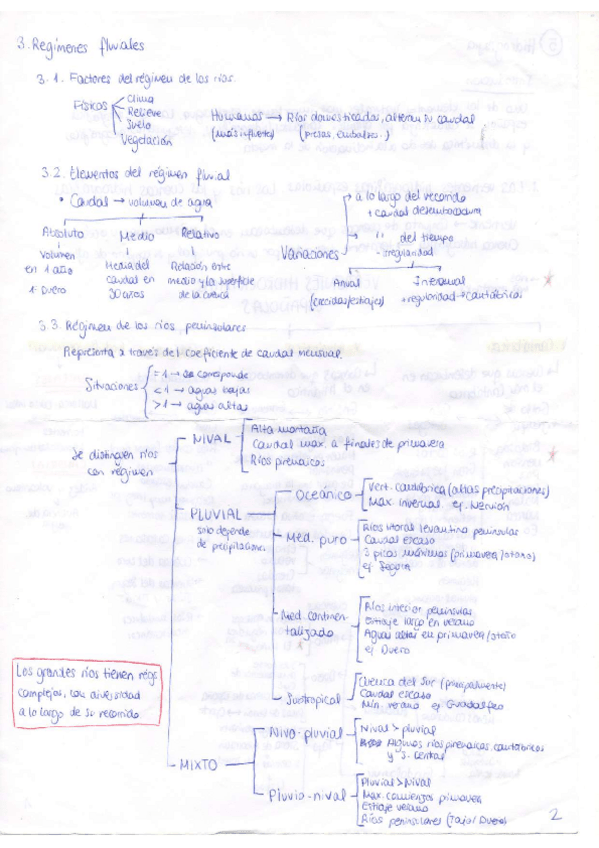 3. Regímenes fluviales
3.1. Factores del régimen de los ríos.
Físicos
Clima
Relieve
Suelo
Vegetación
Humanos → Ríos domesticados, alteran su caudal
(más influyente) (presas, embalses..)
3.2. Elementos del régimen fluvial
• Caudal → volumen de agua
Absoluto
Medio
Relativo
Volumen
en 1 año
1º Duero
Media del
caudal en
30 años
Relación entre
medio y la superficie
de la cuenca
Variaciones
a lo largo del recorrido
+ caudal desembocadura
" " del tiempo
- irregularidad
Anual
(crecidas/estiajes)
Interanual
+ regularidad → cantábricos
3.3. Régimen de los ríos peninsulares
Representa a través del coeficiente de caudal mensual.
Situaciones
= 1 → se corresponde
< 1 → aguas bajas
> 1 → aguas altas
Se distinguen ríos
con régimen
NIVAL
Alta montaña
Caudal max. a finales de primavera
Ríos pirenaicos
PLUVIAL
solo depende
de precipitación.
Oceánico
Vert. cantábrica (altas precipitaciones)
Max. invernal ej. Nervión
Med. puro
Ríos litoral levantino peninsular
Caudal escaso
2 picos máximos (primavera/otoño)
ej Segura
Med. continen-
talizado
Ríos interior penínsulas
Estiaje largo en verano
Aguas altas en primavera/otoño
ej Duero
Suctropical
Cuenca del Sur (principalmente)
Caudal escaso
Min verano ej Guadalfeo
MIXTO
Nivo-pluvial
Nival > pluvial
Algunos ríos pirenaicos, cantábricos
y S. Central
Pluvio-nival
Pluvial > Nival
Max. comienzos primavera
Estiaje verano
Ríos peninsulares (Tajo/Duero)
Los grandes ríos tienen régs
complejos, con diversidad
a lo largo de su recorrido
2